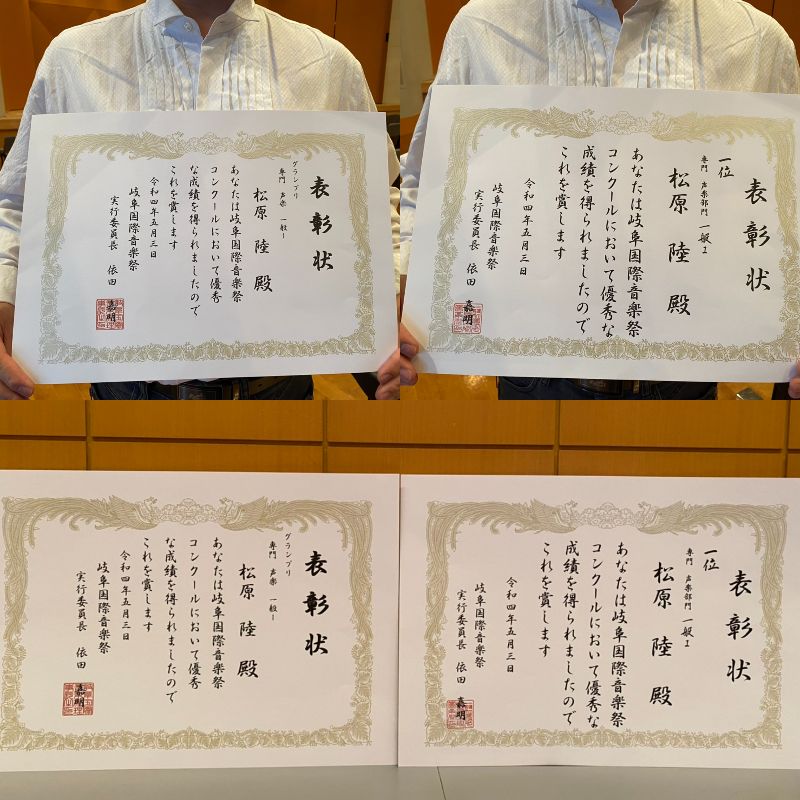 表彰状
グランプリ
専門 声楽 一般Ⅰ
松原 陸 殿
あなたは岐阜国際音楽祭
コンクールにおいて優秀
な成績を得られましたので
これを賞します
令和四年五月三日
岐阜国際音楽祭
実行委員長 依田 嘉明
表彰状
一位
専門 声楽部門 一般Ⅰ
松原 陸 殿
あなたは岐阜国際音楽祭
コンクールにおいて優秀な
成績を得られましたので
これを賞します
令和四年五月三日
岐阜国際音楽祭
実行委員長 依田 嘉明
表彰状
グランプリ
専門 声楽 一般Ⅰ
松原 陸 殿
あなたは岐阜国際音楽祭
コンクールにおいて優秀
な成績を得られましたので
これを賞します
令和四年五月三日
岐阜国際音楽祭
実行委員長 依田 嘉明
表彰状
一位
専門 声楽部門 一般Ⅰ
松原 陸 殿
あなたは岐阜国際音楽祭
コンクールにおいて優秀な
成績を得られましたので
これを賞します
令和四年五月三日
岐阜国際音楽祭
実行委員長 依田 嘉明